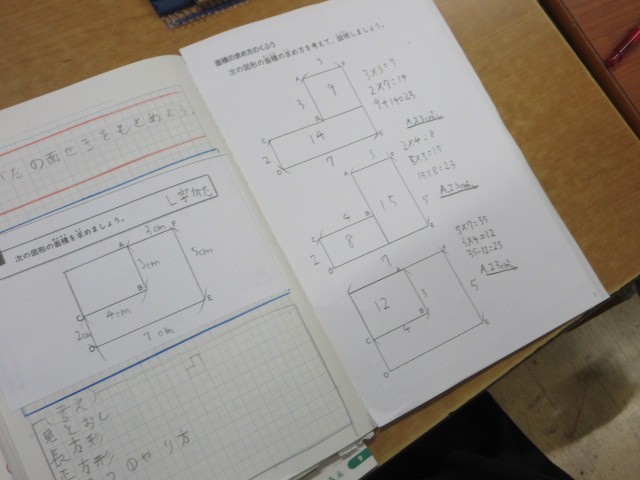 がたの面せきをもとめよう。
L字がた
次の図形の面積を求めましょう。
A 3cm F
3cm
5cm
B
C 4cm
2cm
E
D 7cm
(考え)
見とおし
長方形
正方形
つのやり方
面積の求め方のくふう
次の図形の面積の求め方を考えて、説明しましょう。
3
A F
3 9
B
C
14
2
E
D 7
3×3=9
2×7=14
9+14=23
A.23cm²
3
A F
4
B 15 5
C
2 8
E
D
2×4=8
5×3=15
15+8=23
A.23cm²
7
A F
12 3
B 5
C 4
E
D
5×7=35
3×4=12
35-12=23
A.23cm²